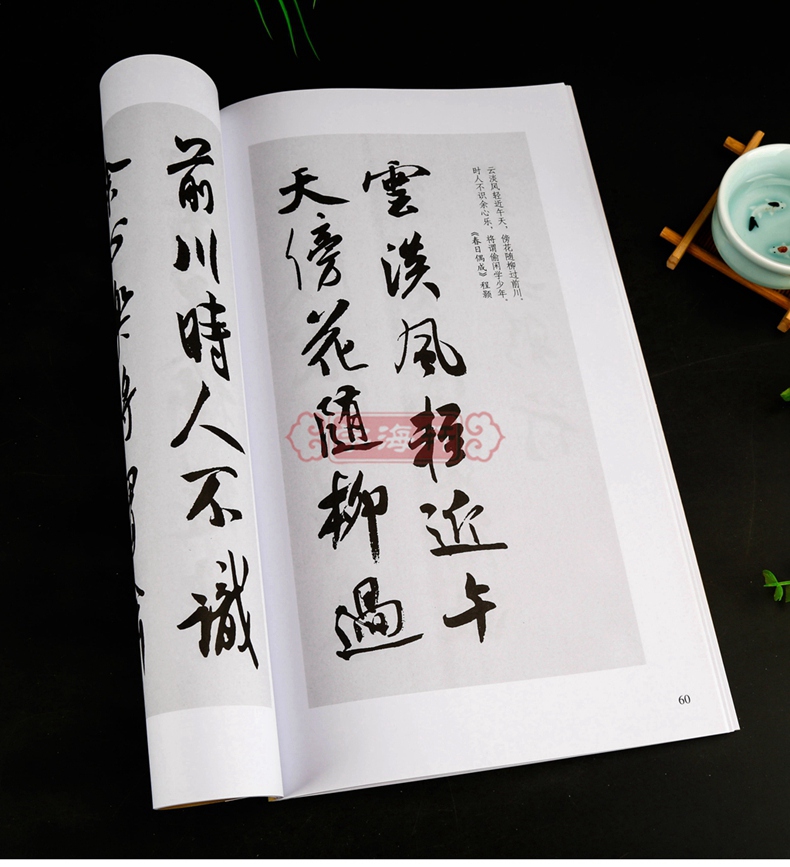 云淡风轻近午天，傍花随柳过前川。
时人不识余心乐，将谓偷闲学少年。
《春日偶成》程颢
雲淡風輕近午
天傍花隨柳過
前川時人不識
海
60